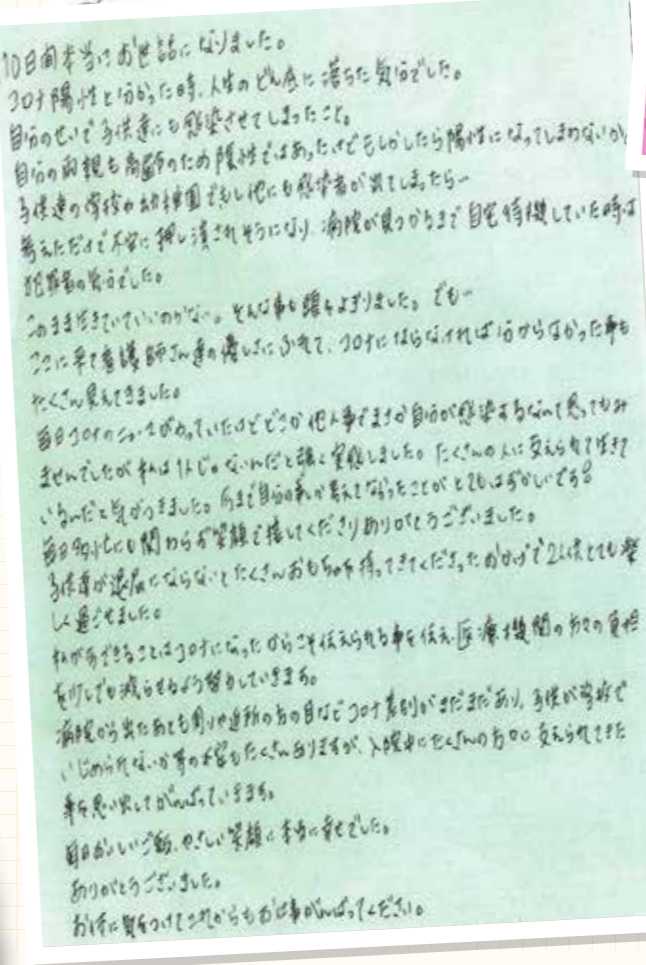 10日間本当にお世話になりました。
コロナ陽性と分かった時、人生のどん底に落ちた気分でした。
自分のせいで子供達にも感染させてしまったこと。
自分の両親も高齢のため陰性ではあったけどもしかしたら陽性になってしまわないか。
子供達の学校や幼稚園でもし他にも感染者が出てしまったら…
考えただけで不安に押し潰されそうになり、病院が見つかるまで自宅待機していた時は
犯罪者の気分でした。
このまま生きていていいのかな…。そんな事も頭をよぎりました。でも…
ここに来て看護師さん達の優しさにふれて、コロナにならなければ分からなかった事も
たくさん見えてきました。
毎日コロナのニュースがやっていたけどどこか他人事でまさか自分が感染するなんて思ってもみ
ませんでしたが私は1人じゃないんだと強く実感しました。たくさんの人に支えられて生きて
いるんだと気がつきました。今まで自分の事しか考えてなかったことがとてもはずかしいです。
毎日多忙にも関わらず笑顔で接してくださりありがとうございました。
子供達が退屈にならないとたくさんおもちゃを持ってきてくださったおかげで2人供とても楽
しく過ごせました。
私ができることはコロナになったからこそ伝えられる事を伝え、医療機関の方々の負担
を少しでも減らせるよう努力していきます。
病院から出たあとも周りや近所の方の目などコロナ差別がまだまだあり、子供が学校で
いじめられないか等の不安もたくさんありますが、入院中にたくさんの方々に支えられてきた
事を思い出してがんばっていきます。
毎日おいしいご飯、やさしい笑顔に本当に幸せでした。
ありがとうございました。
お体に気をつけてこれからもお仕事がんばってください。